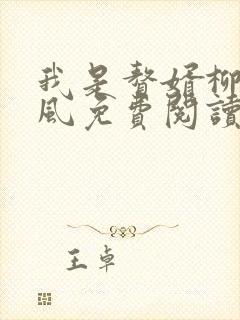 我是贅婿柳
風免費閱讀
王卓